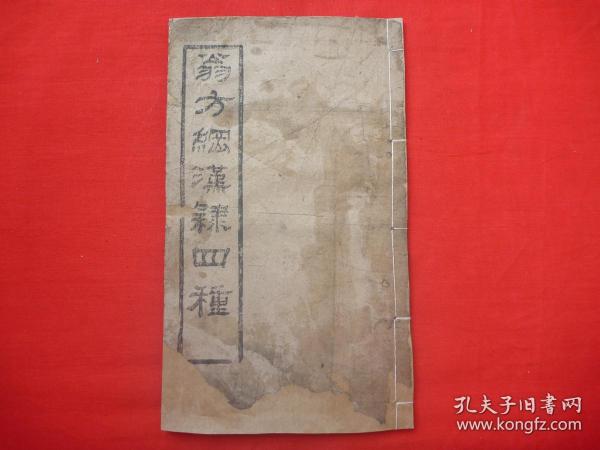 翁方綱漢隸四種
孔夫子旧書网
www.kongfz.com